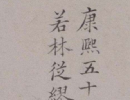 康熙五十
若林從繆